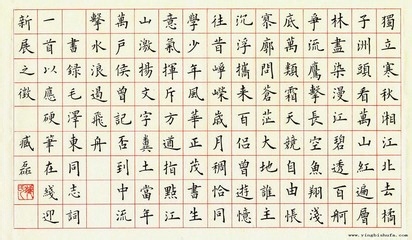 獨立寒秋湘江北去橘
子洲頭看萬山紅遍層
林盡染漫江碧透百舸
爭流鷹擊長空魚翔淺
底萬類霜天競自由悵
寥廓問蒼茫大地誰主
沉浮攜來百侶曾遊憶
往昔崢嶸歲月稠恰同
學少年風華正茂書生
意氣揮斥方遒指點江
山激揚文字糞土當年
萬戶侯曾記否到中流
擊水浪遏飛舟
書録毛澤東同志詞
一首以應硬筆在綫迎
新展之徵 臧磊
www.yingbishufa.com